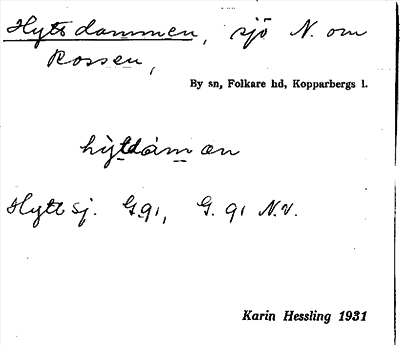 Hyttdammen, sjö N. om
Rossen,
By sn, Folkare hd, Kopparbergs l.
Hyttsj. G.91, G. 91 N.V.
Karin Hessling 1931